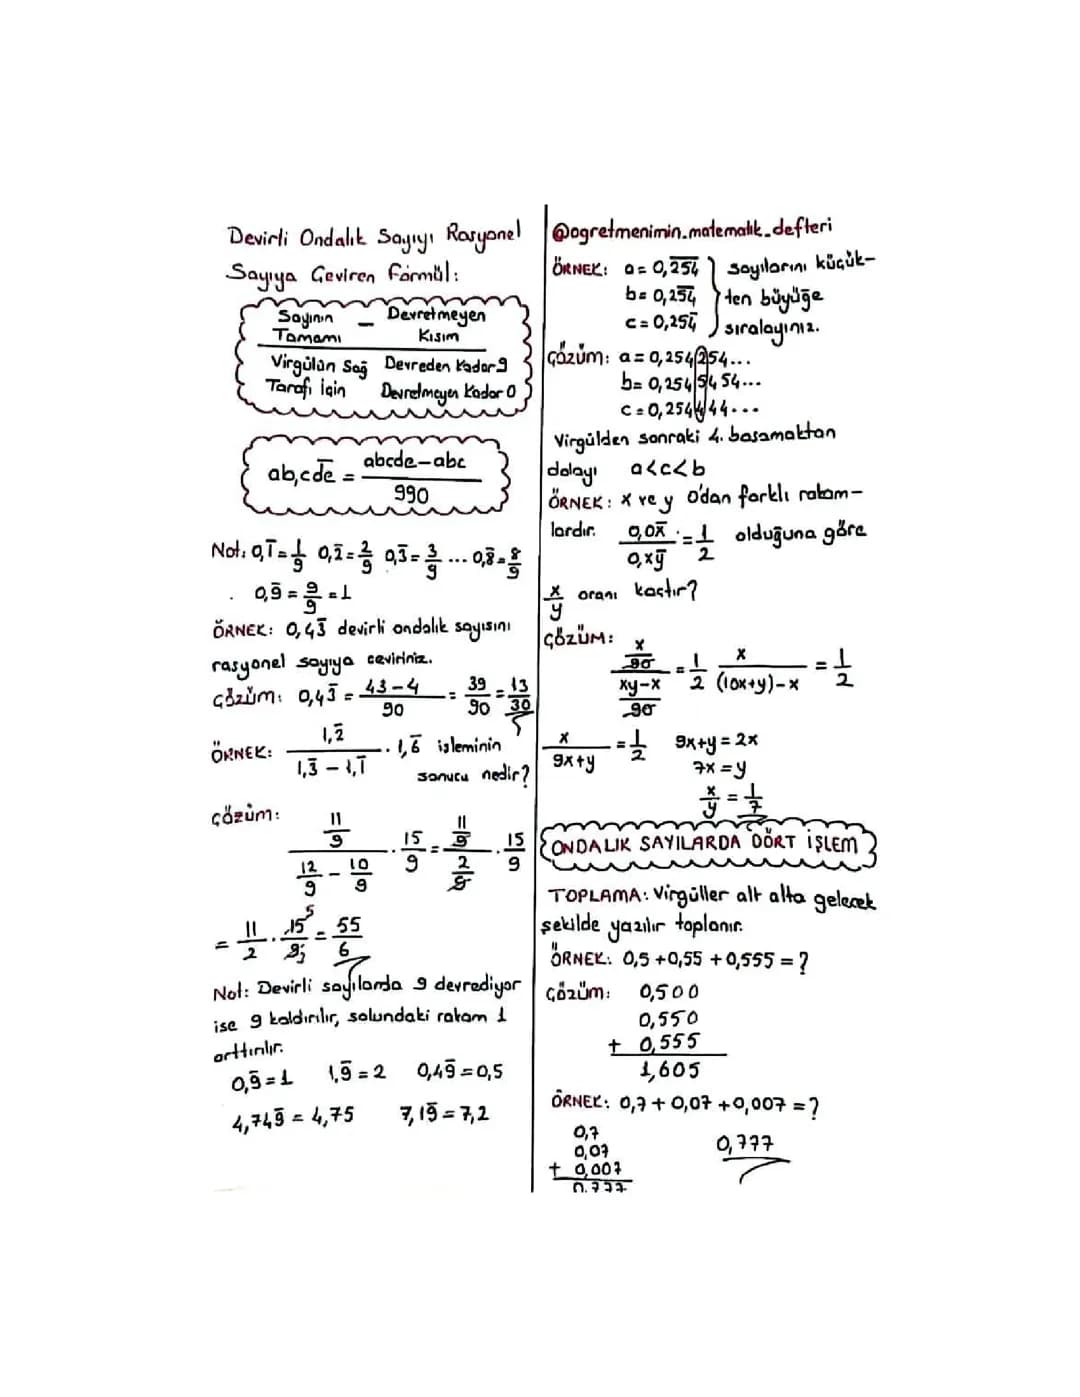 Devirli Ondalık Sayıyı Rasyonel
Sayıya Çeviren Formül:
Sayının Tamamı − Devretmeyen Kısım
Virgülün Sağ Tarafı için Devreden Kadar 9
Devretmeyen Kadar 0
ab,cd̅e̅ = abcde−abc / 990
Not: 0,1̅ = 1/9 0,2̅ = 2/9 0,3̅ = 3/9 ... 0,8̅ = 8/9
0,9̅ = 9/9 = 1
ÖRNEK: 0,43̅ devirli ondalık sayısını
rasyonel sayıya çeviriniz.
Çözüm: 0,43̅ = 43−4 / 90 = 39/90 = 13/30
ÖRNEK: 1,2̅ / 1,3̅ − 1,1̅ · 1,6̅ işleminin
sonucu nedir?
Çözüm: 11/9 / 12/9 − 10/9 · 15/9 = 11/9 / 2/9 · 15/9
= 11/2 · 15/9 = 55/6
Not: Devirli sayılarda 9 devrediyor
ise 9 kaldırılır, solundaki rakam 1
arttırılır.
0,9̅=1 1,9̅=2 0,49̅=0,5
4,749̅ = 4,75 7,19̅=7,2
@ogretmenimin.matematik.defteri
ÖRNEK: a=0,2̅5̅4̅ sayılarını küçük-
b=0,25̅4̅ ten büyüğe
c=0,254̅ sıralayınız.
Çözüm: a=0,254254...
b=0,2545454...
c=0,254444...
Virgülden sonraki 4. basamaktan
dolayı a<c<b
ÖRNEK: x ve y 0'dan farklı rakam-
lardır. 0,0x̅ / 0,xy̅ = 1/2 olduğuna göre
x/y oranı kaçtır?
ÇÖZÜM: x/90 / xy−x/90 = 1/2 x/(10x+y)−x = 1/2
x/9x+y = 1/2 9x+y=2x
7x=y
x/y = 1/7
ONDALIK SAYILARDA DÖRT İŞLEM
TOPLAMA: Virgüller alt alta gelecek
şekilde yazılır toplanır.
ÖRNEK: 0,5+0,55+0,555=?
Çözüm: 0,500
0,550
+ 0,555
1,605
ÖRNEK: 0,7+0,07+0,007=?
0,7
0,07 0,777
+ 0,007
0,777